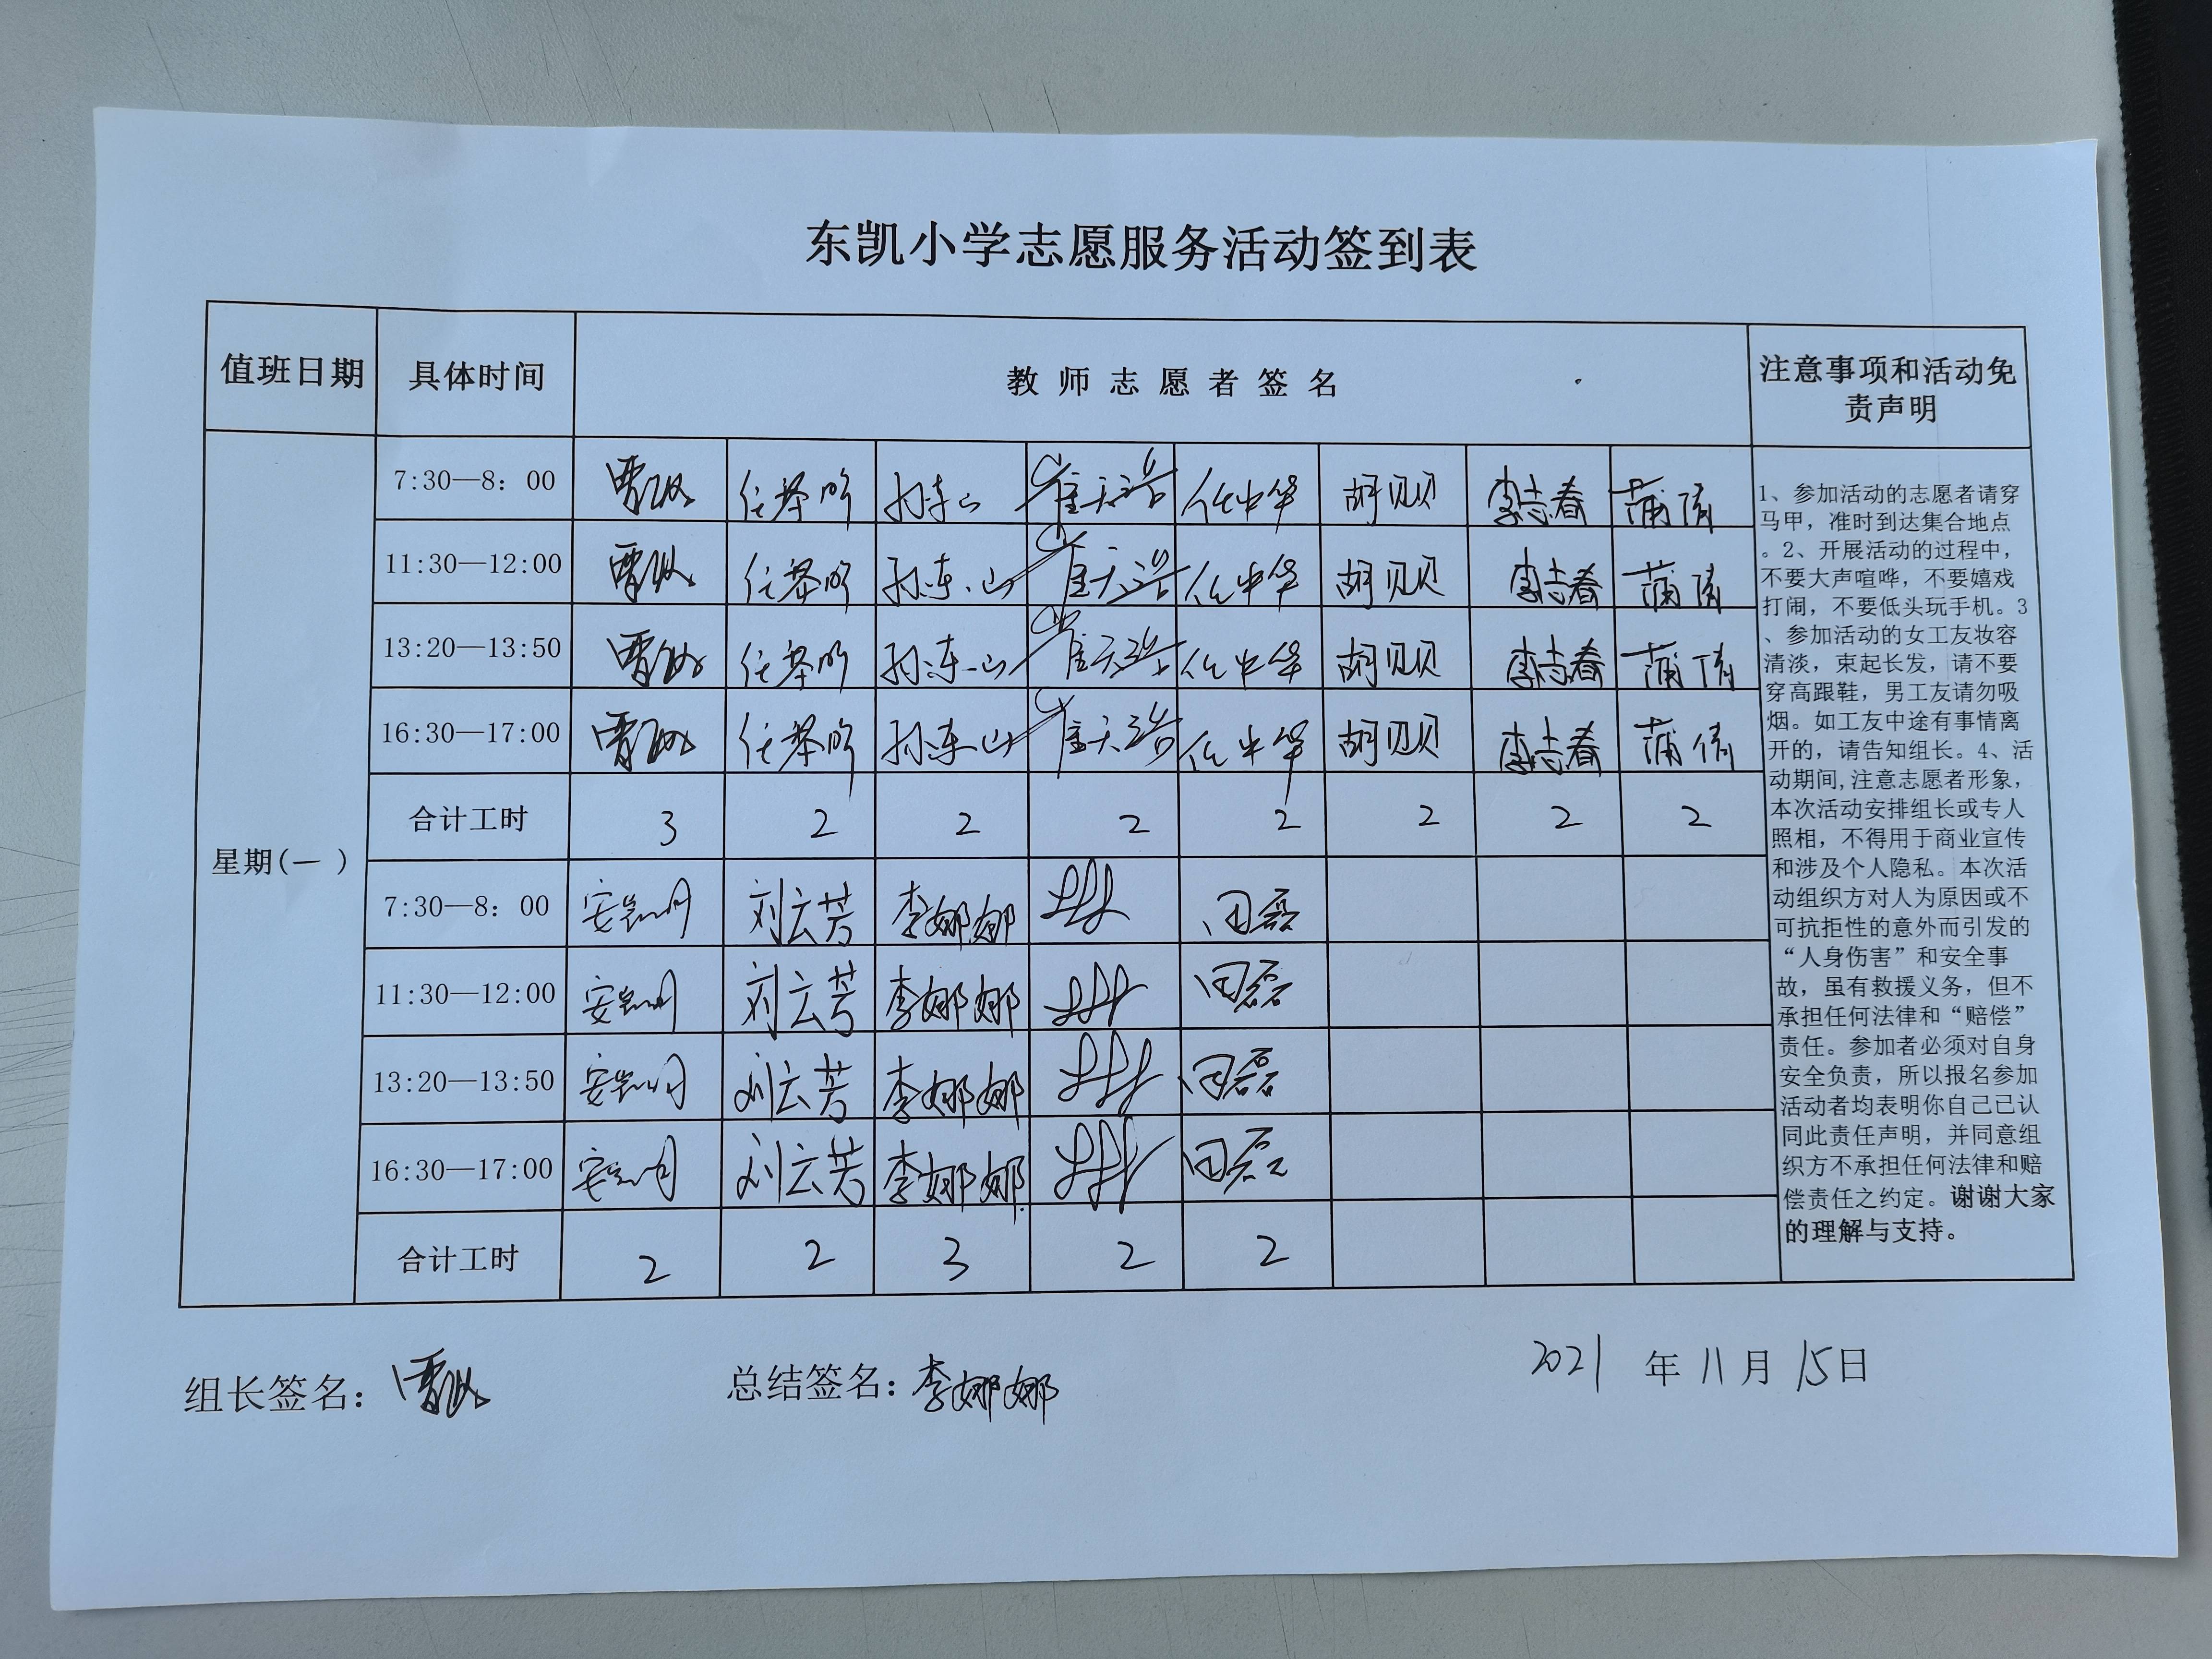 东凯小学志愿服务活动签到表
值班日期 具体时间 教师志愿者签名 注意事项和活动免责声明
星期(一)
7:30—8：00 孙东山 崔天浩 任中华 胡贝贝 李志春 蒲倩
11:30—12:00 孙东山 崔天浩 任中华 胡贝贝 李志春 蒲倩
13:20—13:50 孙东山 崔天浩 任中华 胡贝贝 李志春 蒲倩
16:30—17:00 孙东山 崔天浩 任中华 胡贝贝 李志春 蒲倩
合计工时 3 2 2 2 2 2 2 2
7:30—8：00 刘云芳 李娜娜 田磊
11:30—12:00 刘云芳 李娜娜 田磊
13:20—13:50 刘云芳 李娜娜 田磊
16:30—17:00 刘云芳 李娜娜 田磊
合计工时 2 2 3 2 2
1、参加活动的志愿者请穿
马甲，准时到达集合地点
。2、开展活动的过程中，
不要大声喧哗，不要嬉戏
打闹，不要低头玩手机。3
、参加活动的女工友妆容
清淡，束起长发，请不要
穿高跟鞋，男工友请勿吸
烟。如工友中途有事情离
开的，请告知组长。4、活
动期间,注意志愿者形象，
本次活动安排组长或专人
照相，不得用于商业宣传
和涉及个人隐私。本次活
动组织方对人为原因或不
可抗拒性的意外而引发的
“人身伤害”和安全事
故，虽有救援义务，但不
承担任何法律和“赔偿”
责任。参加者必须对自身
安全负责，所以报名参加
活动者均表明你自己已认
同此责任声明，并同意组
织方不承担任何法律和赔
偿责任之约定。谢谢大家
的理解与支持。
组长签名： 总结签名：李娜娜 2021年11月15日